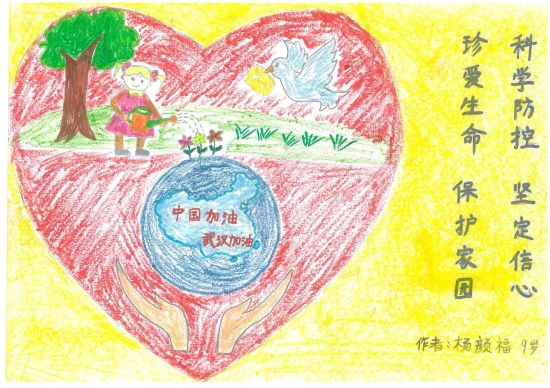 科学防控 坚定信心
珍爱生命 保护家园
中国加油
武汉加油
作者:杨颜福 9岁